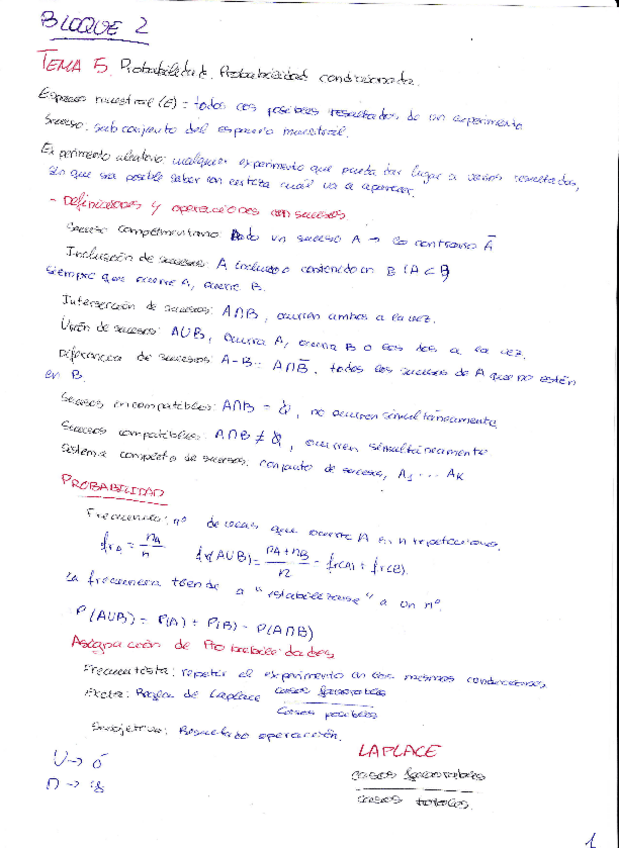 BLOQUE 2
TEMA 5. Probabilidad. Probabilidad condicionada.
Espacio muestral (E) = todos los posibles resultados de un experimento
Suceso: subconjunto del espacio muestral.
Experimento aleatorio: cualquier experimento que pueda dar lugar a varios resultados,
sin que sea posible saber con certeza cuál va a aparecer.
- Definiciones y operaciones con sucesos
Suceso complementario: Dado un suceso A → lo contrario A̅
Inclusión de sucesos: A incluido o contenido en B (A ⊂ B)
siempre que ocurre A, ocurre B.
Intersección de sucesos: A∩B, ocurren ambos a la vez.
Unión de sucesos: A∪B, ocurra A, ocurra B o los dos a la vez.
Diferencia de sucesos: A-B = A∩B̅, todos los sucesos de A que no estén
en B.
Sucesos incompatibles: A∩B = ∅, no ocurren simultáneamente.
Sucesos compatibles: A∩B ≠ ∅, ocurren simultáneamente.
Sistema completo de sucesos: conjunto de sucesos, A₁ ... Aκ
PROBABILIDAD
Frecuencia: nº de veces que ocurre A en n repeticiones.
frA = nA/n fr(A∪B) = (nA + nB)/n = fr(A) + fr(B).
La frecuencia tiende a "estabilizarse" a un nº.
P(A∪B) = P(A) + P(B) - P(A∩B)
Asignación de Probabilidades
Frecuentista: repetir el experimento en las mismas condiciones
Exacta: Regla de Laplace casos favorables
casos posibles
Subjetiva: Resultado operación.
LAPLACE
U → ó
casos favorables
∩ → y
casos totales.
1